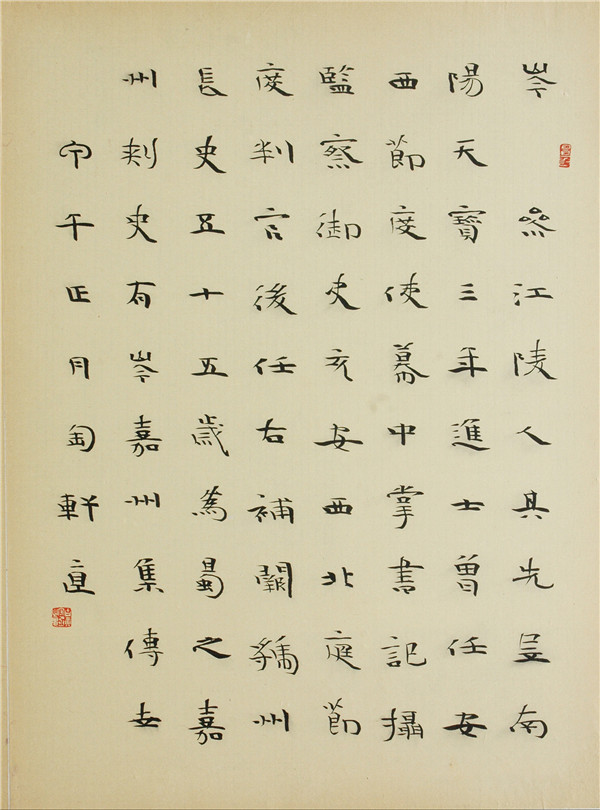 岑參江陵人其先南
陽天寶三年進士曾任安
西節度使幕中掌書記攝
監察御史充安西北庭節
度判官後任右補闕虢州
長史五十五歲為蜀之嘉
州刺史有岑嘉州集傳世
甲午正月匋軒